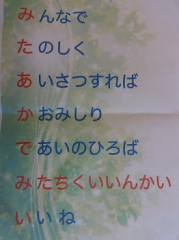 みんなで
たのしく
あいさつすれば
かおみしり
であいのひろば
みたちくいいんかい
いいね